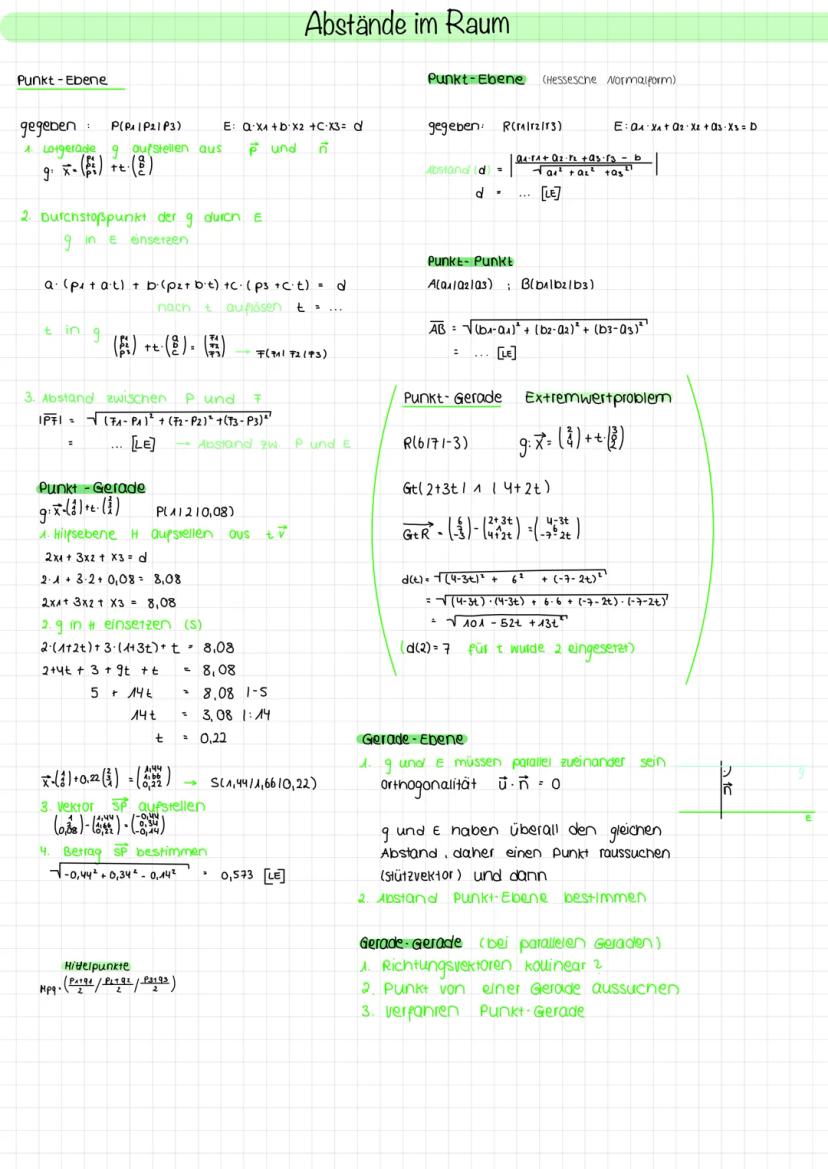 Abstände im Raum
Punkt-Ebene
gegeben : P(p1|p2|p3) E: a·x1+b·x2+c·x3= d
1. Lotgerade g aufstellen aus p⃗ und n⃗
g: x⃗=(p1 p2 p3) +t·(a b c)
2. Durchstoßpunkt der g durch E
g in E einsetzen
a·(p1+a·t) + b·(p2+b·t)+c·(p3+c·t) = d
nach t auflösen t = ...
t in g
(p1 p2 p3) +t·(a b c) = (F1 F2 F3) → F(F1|F2|F3)
3. Abstand zwischen P und F
|PF| = √(F1-P1)²+(F2-P2)²+(F3-P3)²
= ... [LE] → Abstand zw. P und E
Punkt-Gerade
g:x⃗=(1 1 0)+t·(2 3 1) P(1|2|0,08)
1. Hilfsebene H aufstellen aus t v⃗
2x1+3x2+x3=d
2·1+3·2+0,08= 8,08
2x1+3x2+x3 = 8,08
2. g in H einsetzen (S)
2·(1+2t)+3·(1+3t)+t = 8,08
2+4t+3+9t+t = 8,08
5 + 14t = 8,08 |-5
14t = 3,08 |:14
t = 0,22
x⃗=(1 1 0)+0,22(2 3 1) =(1,44 1,66 0,22) → S(1,44|1,66|0,22)
3. Vektor SP⃗ aufstellen
(1 2 0,08)-(1,44 1,66 0,22)=(-0,44 0,34 -0,14)
4. Betrag SP⃗ bestimmen
√-0,44²+0,34²-0,14² = 0,573 [LE]
Mittelpunkte
Mpq=(p1+q1/2 / p2+q2/2 / p3+q3/2)
Punkt-Ebene (Hessesche Normalform)
gegeben: R(r1|r2|r3) E: a1·x1+a2·x2+a3·x3=b
Abstand (d) = |a1·r1+a2·r2+a3·r3-b / √a1²+a2²+a3²|
d = ... [LE]
Punkt-Punkt
A(a1|a2|a3) ; B(b1|b2|b3)
AB = √(b1-a1)²+(b2-a2)²+(b3-a3)²
= ... [LE]
Punkt-Gerade Extremwertproblem
R(6|7|-3) g:x⃗=(2 1 4)+t·(3 0 2)
Gt(2+3t| 1 | 4+2t)
GtR⃗ = (6 7 -3)-(2+3t 1 4+2t)=(4-3t 6 -7-2t)
d(t)=√(4-3t)² + 6² + (-7-2t)²
=√(4-3t)·(4-3t) + 6·6 + (-7-2t)·(-7-2t)
=√101 - 52t + 13t²
(d(2)=7 für t wurde 2 eingesetzt)
Gerade-Ebene
1. g und E müssen parallel zueinander sein
Orthogonalität u⃗·n⃗ = 0
g
n⃗
E
g und E haben überall den gleichen
Abstand, daher einen Punkt raussuchen
(Stützvektor) und dann
2. Abstand Punkt-Ebene bestimmen
Gerade-Gerade (bei parallelen Geraden)
1. Richtungsvektoren kollinear?
2. Punkt von einer Gerade aussuchen
3. Verfahren Punkt-Gerade